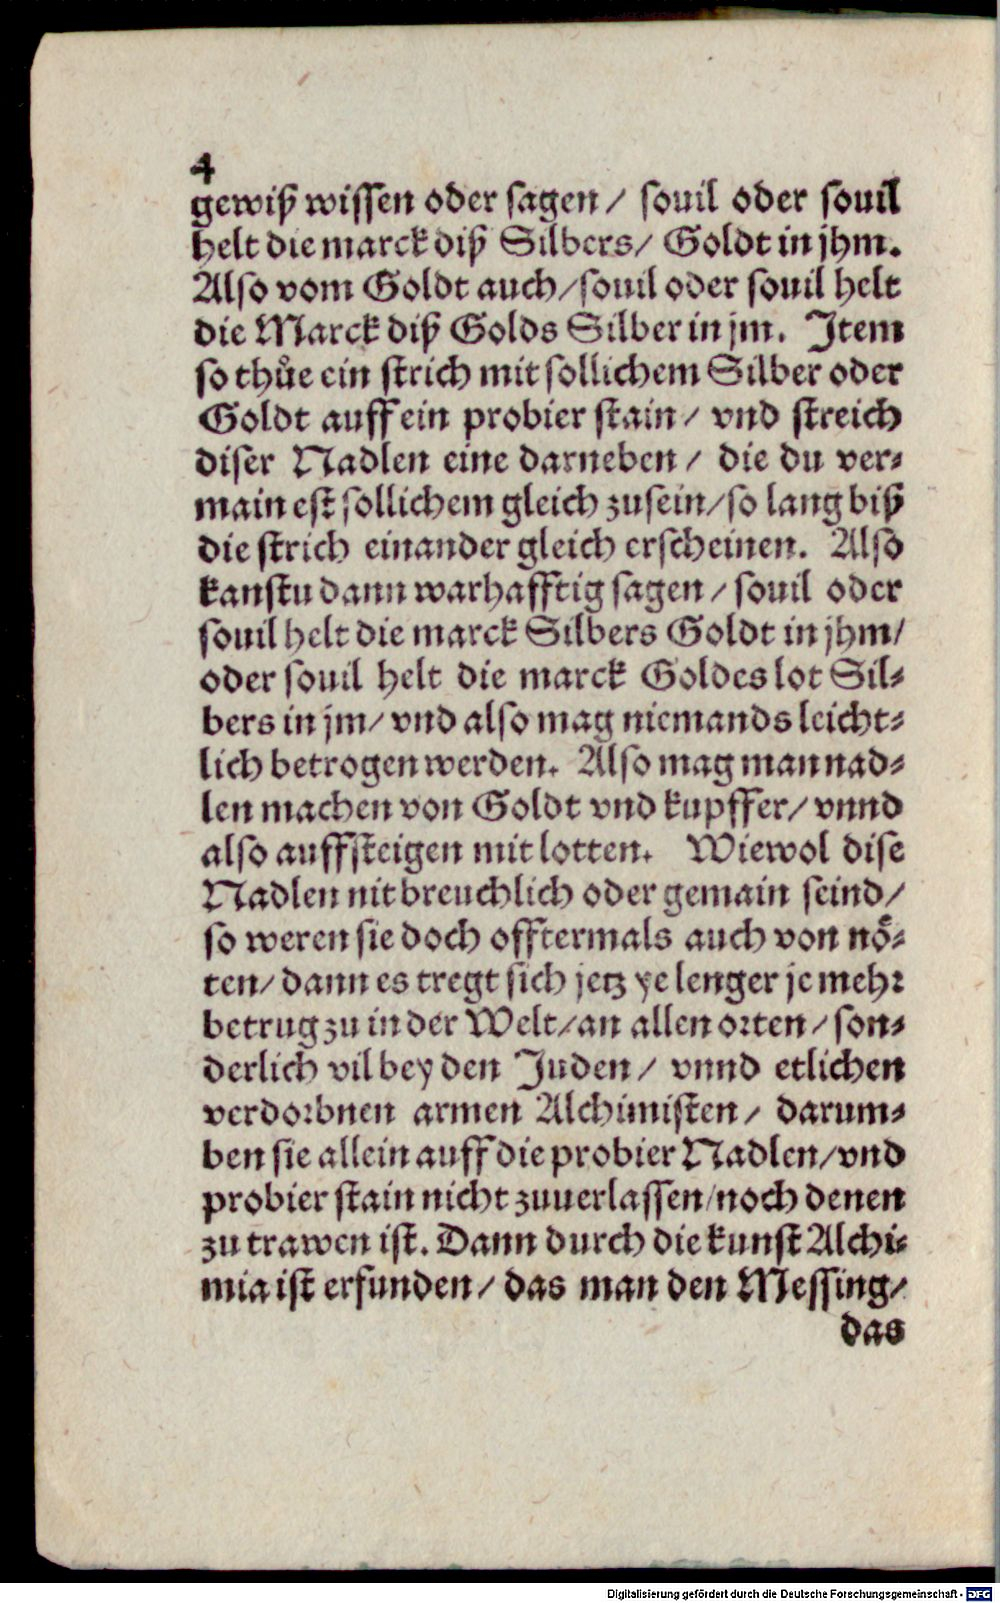 4
gewiß wissen oder sagen / souil oder souil
helt die marck diß Silbers / Goldt in jhm.
Also vom Goldt auch / souil oder souil helt
die Marck diß Golds Silber in jm. Item
so thůe ein strich mit sollichem Silber oder
Goldt auff ein probier stain / vnd streich
diser Nadlen eine darneben / die du ver⸗
mainest sollichem gleich zusein / so lang biß
die strich einander gleich erscheinen. Also
kanstu dann warhafftig sagen / souil oder
souil helt die marck Silbers Goldt in jhm /
oder souil helt die marck Goldes lot Sil⸗
bers in jm / vnd also mag niemands leicht⸗
lich betrogen werden. Also mag man nad⸗
len machen von Goldt vnd kupffer / vnnd
also auffsteigen mit lotten. Wiewol dise
Nadlen nit breuchlich oder gemain seind /
so weren sie doch offtermals auch von nö⸗
ten / dann es tregt sich jetz ye lenger je mehr
betrug zu in der Welt / an allen orten / son⸗
derlich vil bey den Juden / vnnd etlichen
verdorbnen armen Alchimisten / darum⸗
ben sie allein auff die probier Nadlen / vnd
probier stain nicht zuuerlassen / noch denen
zu trawen ist. Dann durch die kunst Alchi⸗
mia ist erfunden / das man den Messing /
das
Digitalisierung gefördert durch die Deutsche Forschungsgemeinschaft - DFG